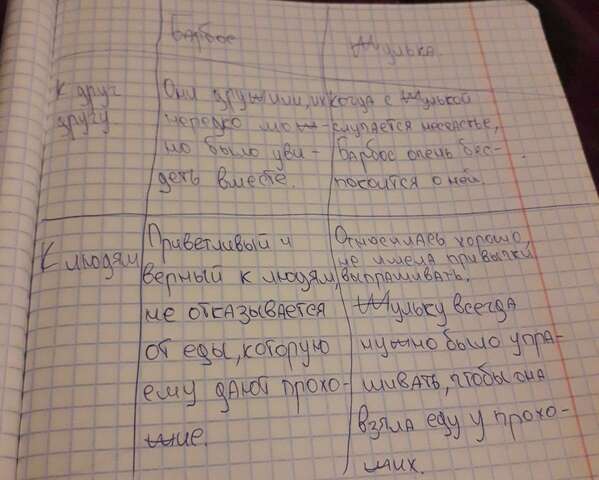 Барбос
Жулька
К друг
другу
Они дружили, их
нередко мож-
но было уви-
деть вместе.
Когда с Жулькой
случается несчастье,
Барбос очень бес-
покоится о ней.
К людям
Приветливый и
верный к людям,
не отказывается
от еды, которую
ему дают прохо-
жие.
Относилась хорошо,
не имела привычки
выпрашивать.
Жульку всегда
нужно было упра-
шивать, чтобы она
взяла еду у прохо-
жих.